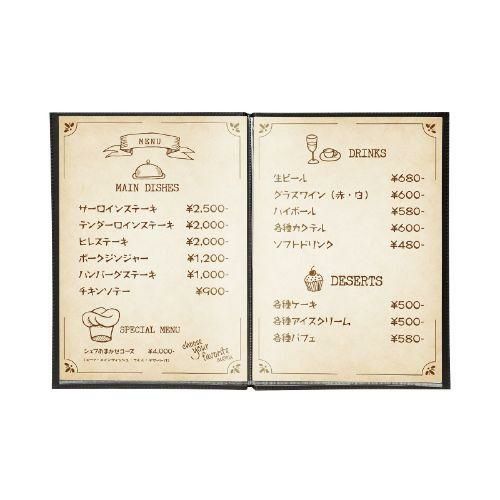 MENU
MAIN DISHES
サーロインステーキ ¥2,500-
テンダーロインステーキ ¥2,000-
ヒレステーキ ¥2,000-
ポークジンジャー ¥1,200-
ハンバーグステーキ ¥1,000-
チキンソテー ¥900-
SPECIAL MENU
シェフおまかせコース ¥4,000-
choose
your
favorite
DRINKS
生ビール ¥680-
グラスワイン(赤・白) ¥600-
ハイボール ¥580-
各種カクテル ¥600-
ソフトドリンク ¥480-
DESERTS
各種ケーキ ¥500-
各種アイスクリーム ¥500-
各種パフェ ¥580-